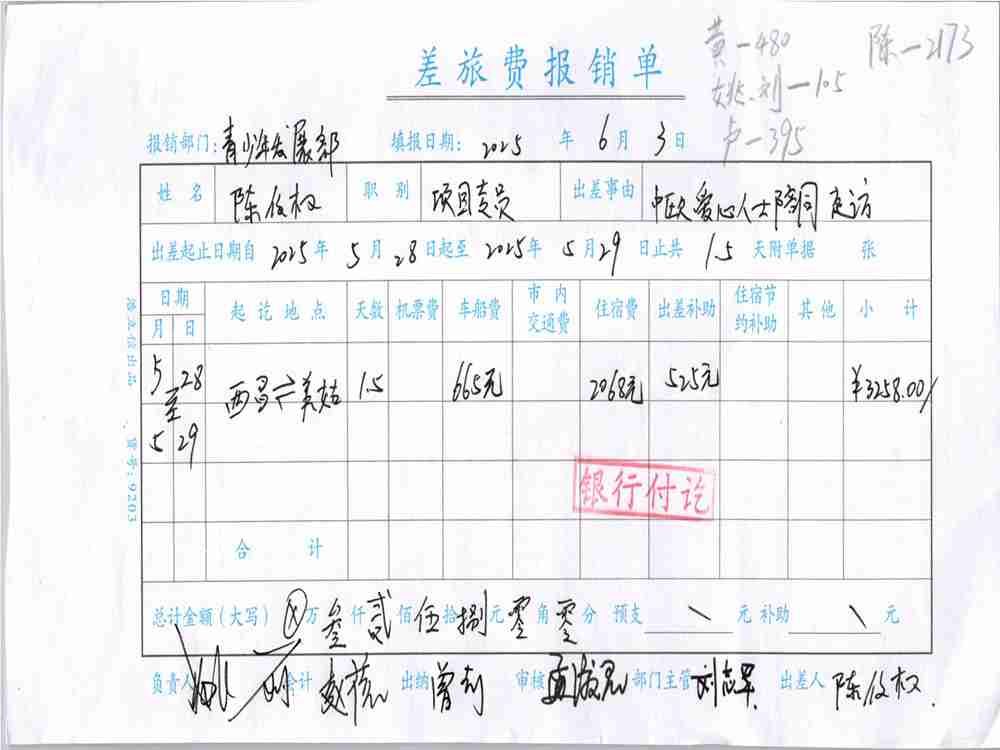 黄—480 陈—2173
姚、刘—105
卢—395
差旅费报销单
报销部门：青少年发展部 填报日期： 2025 年 6 月 3 日
姓名 陈仪权 职别 项目专员 出差事由 中欧爱心人士陪同走访
出差起止日期自 2025 年 5 月 28 日起至 2025 年 5 月 29 日止共 1.5 天附单据 张
日期 起讫地点 天数 机票费 车船费 市内交通费 住宿费 出差补助 住宿节约补助 其他 小计
月 日
5 28 至 5 29 西昌⇌美姑 1.5 665元 2068元 525元 ¥3258.00/
银行付讫
合计
总计金额（大写）ⓧ万叁仟贰佰伍拾捌元零角零分 预支 \ 元 补助 \ 元
负责人 会计 出纳 曾莉 审核 部门主管 刘志军 出差人 陈仪权
货号：9203